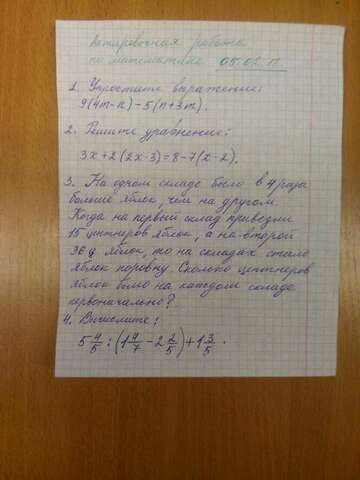 Актировочная работа
по математике 05.02.11.
1. Упростите выражение:
9(4m-n)-5(n+3m).
2. Решите уравнение:
3x+2(2x-3)=8-7(x-2).
3. На одном складе было в 4 раза
больше яблок, чем на другом.
Когда на первый склад привезли
15 центнеров яблок, а на второй
36 ц яблок, то на складах стало
яблок поровну. Сколько центнеров
яблок было на каждом складе
первоначально?
4. Вычислите:
5 4/5 : (1 4/7 - 2 2/5) + 1 3/5.